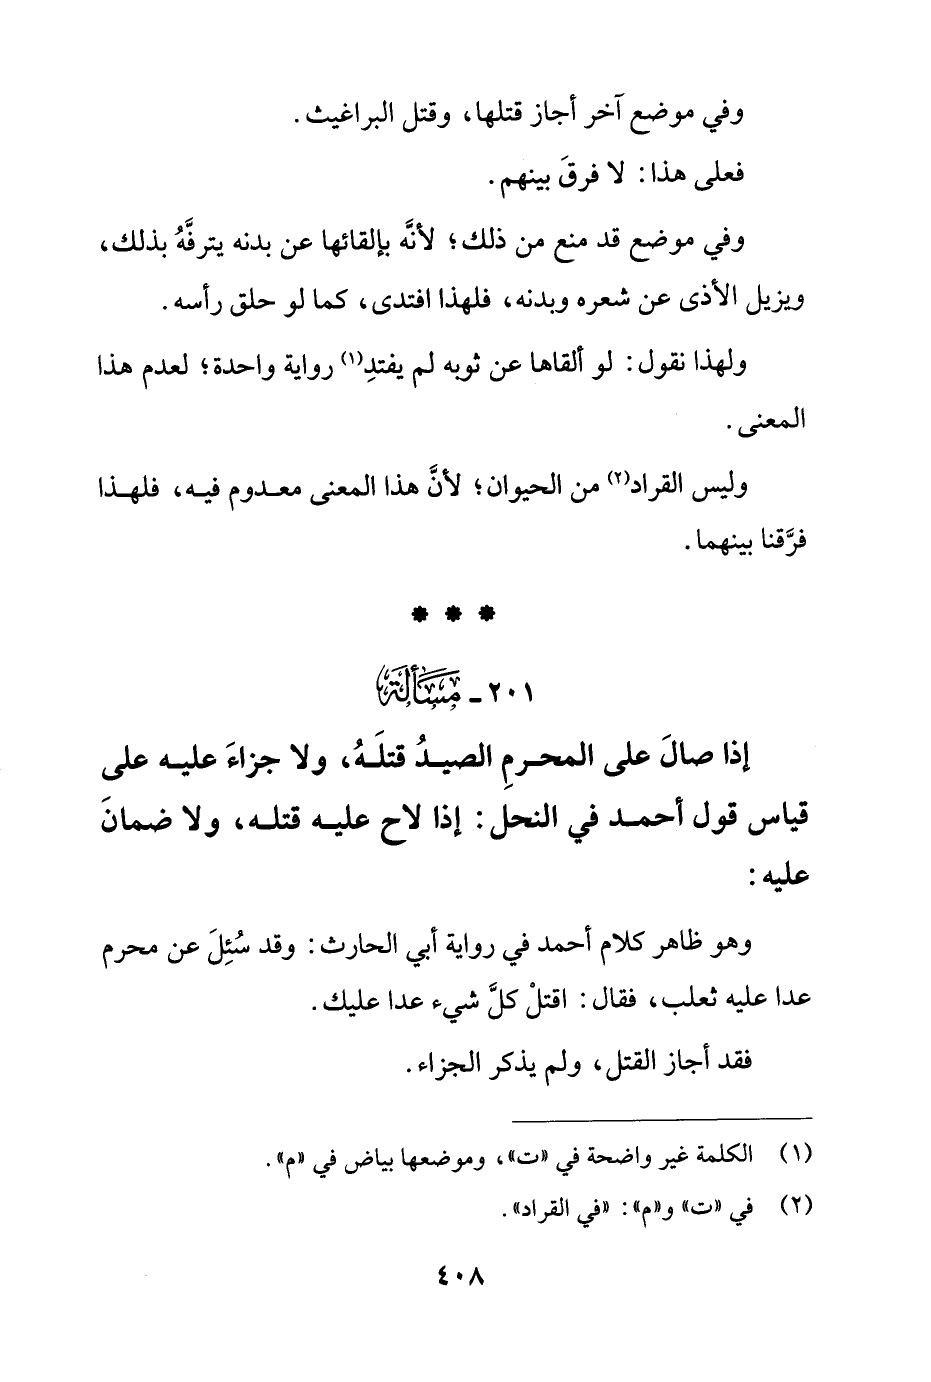 وفي موضع آخر أجاز قتلها، وقتل البراغيث.
فعلى هذا: لا فرقَ بينهم.
وفي موضع قد منع من ذلك؛ لأنَّه بإلقائها عن بدنه يترفَّهُ بذلك،
ويزيل الأذى عن شعره وبدنه، فلهذا افتدى، كما لو حلق رأسه.
ولهذا نقول: لو ألقاها عن ثوبه لم يفتدِ(١) رواية واحدة؛ لعدم هذا
المعنى.
وليس القراد(٢) من الحيوان؛ لأنَّ هذا المعنى معدوم فيه، فلهذا
فرَّقنا بينهما.
* * *
٢٠١ - مَسْأَلَة
إذا صالَ على المحرمِ الصيدُ قتلَهُ، ولا جزاءَ عليه على
قياس قول أحمد في النحل: إذا لاح عليه قتله، ولا ضمانَ
عليه:
وهو ظاهر كلام أحمد في رواية أبي الحارث: وقد سُئِلَ عن محرم
عدا عليه ثعلب، فقال: اقتلْ كلَّ شيء عدا عليك.
فقد أجاز القتل، ولم يذكر الجزاء.
(١) الكلمة غير واضحة في «ت»، وموضعها بياض في «م».
(٢) في «ت» و«م»: «في القراد».
٤٠٨